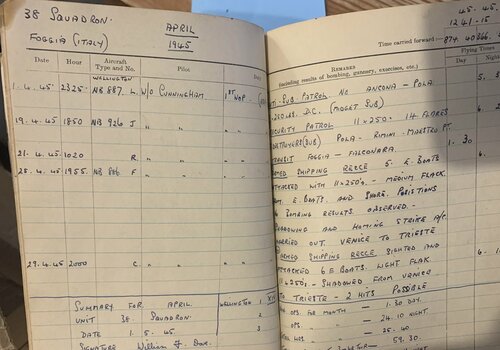 38 SQUADRON.
FOGGIA (ITALY)
APRIL
1945
Date
Hour
Aircraft Type and No.
Pilot
Duty
WELLINGTON
1.4.45 2325 NB 887. L. W/O CUNNINGHAM 1ST W.OP
19.4.45 1850 NB 926 J " "
21.4.45 1020 R. " "
25.4.45 1955 NB 886 F " "
29.4.45 2000 C. " "
SUMMARY FOR APRIL WELLINGTON 1
UNIT 38 SQUADRON. 2
DATE 1.5.45 3
SIGNATURE William J.
45.45.
1241.15
Time carried forward:— 874.40
REMARKS
(including results of bombing, gunnery, exercises, etc.)
Flying Times
Day
Night
SUB-PATROL. NO ANCONA - POLA
250 LBS. D.C. (MIDGET SUB)
SECURITY PATROL 11x250. 14 FLARES
(SUB) POLA - RIMINI - MAESTRO PT.
TRANSIT FOGGIA - FALCONARA. 1.30
ARMED SHIPPING RECCE 5 E. BOATS
ATTACKED WITH 11x250'S - MEDIUM FLACK
FROM E. BOATS AND SHORE POSITIONS
BOMBING RESULTS OBSERVED -
SHADOWING AND HOMING STRIKE A/C.
CARRIED OUT. VENICE TO TRIESTE
ARMED SHIPPING RECCE SIGHTED AND
ATTACKED 6 E BOATS. LIGHT FLAK
11x250'S - SHADOWED FROM VENICE
TO TRIESTE - 2 HITS POSSIBLE
OPS. FOR MONTH - 1.30 DAY.
OPS. " " - 24.10 NIGHT
HRS " " - 25.40
59.30